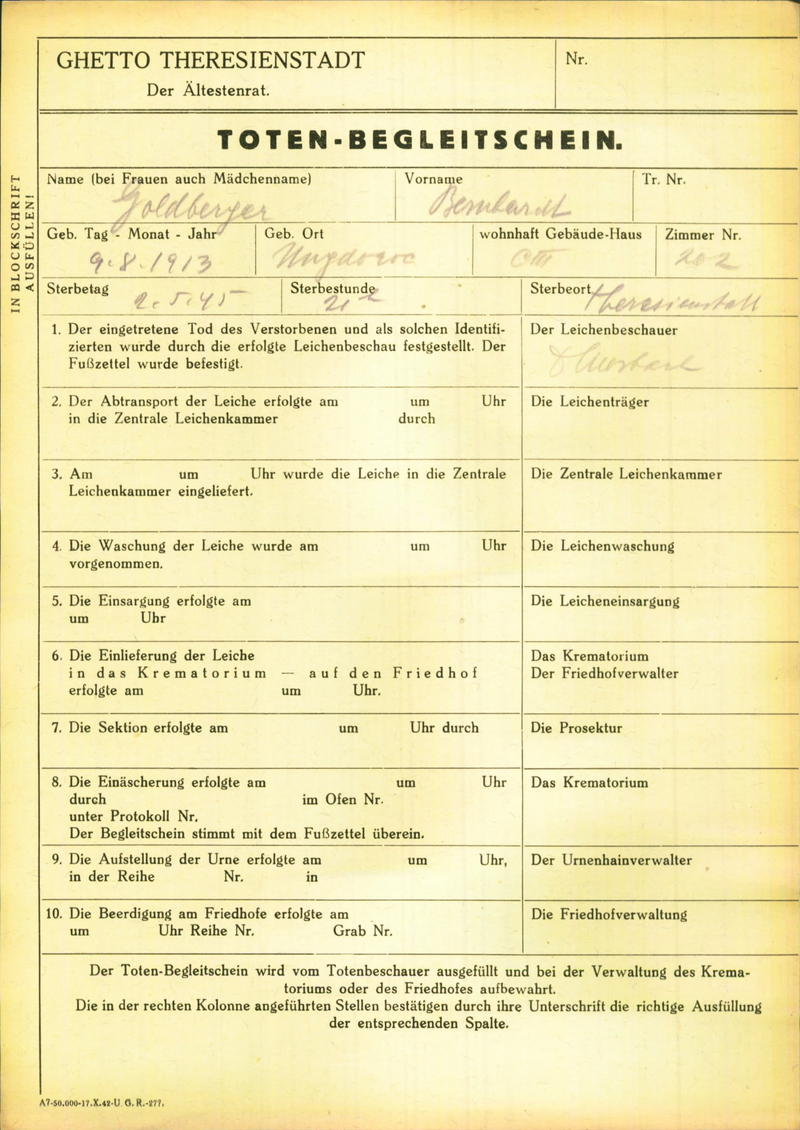 GHETTO THERESIENSTADT
Der Ältestenrat.
Nr.
TOTEN-BEGLEITSCHEIN.
IN BLOCKSCHRIFT
AUSFÜLLEN!
Name (bei Frauen auch Mädchenname)
Goldberger
Vorname
Bernhardt
Tr. Nr.
Geb. Tag - Monat - Jahr
9.8.1913
Geb. Ort
wohnhaft Gebäude-Haus
C III
Zimmer Nr.
202
Sterbetag
2.5.45
Sterbestunde
21
Sterbeort
Theresienstatt
1. Der eingetretene Tod des Verstorbenen und als solchen Identifi-
zierten wurde durch die erfolgte Leichenbeschau festgestellt. Der
Fußzettel wurde befestigt.
Der Leichenbeschauer
2. Der Abtransport der Leiche erfolgte am um Uhr
in die Zentrale Leichenkammer durch
Die Leichenträger
3. Am um Uhr wurde die Leiche in die Zentrale
Leichenkammer eingeliefert.
Die Zentrale Leichenkammer
4. Die Waschung der Leiche wurde am um Uhr
vorgenommen.
Die Leichenwaschung
5. Die Einsargung erfolgte am
um Uhr
Die Leicheneinsargung
6. Die Einlieferung der Leiche
in das Krematorium — auf den Friedhof
erfolgte am um Uhr.
Das Krematorium
Der Friedhofverwalter
7. Die Sektion erfolgte am um Uhr durch
Die Prosektur
8. Die Einäscherung erfolgte am um Uhr
durch im Ofen Nr.
unter Protokoll Nr.
Der Begleitschein stimmt mit dem Fußzettel überein.
Das Krematorium
9. Die Aufstellung der Urne erfolgte am um Uhr,
in der Reihe Nr. in
Der Urnenhainverwalter
10. Die Beerdigung am Friedhofe erfolgte am
um Uhr Reihe Nr. Grab Nr.
Die Friedhofverwaltung
Der Toten-Begleitschein wird vom Totenbeschauer ausgefüllt und bei der Verwaltung des Krema-
toriums oder des Friedhofes aufbewahrt.
Die in der rechten Kolonne angeführten Stellen bestätigen durch ihre Unterschrift die richtige Ausfüllung
der entsprechenden Spalte.
A7-50.000-17.X.42-U G. R.-277.